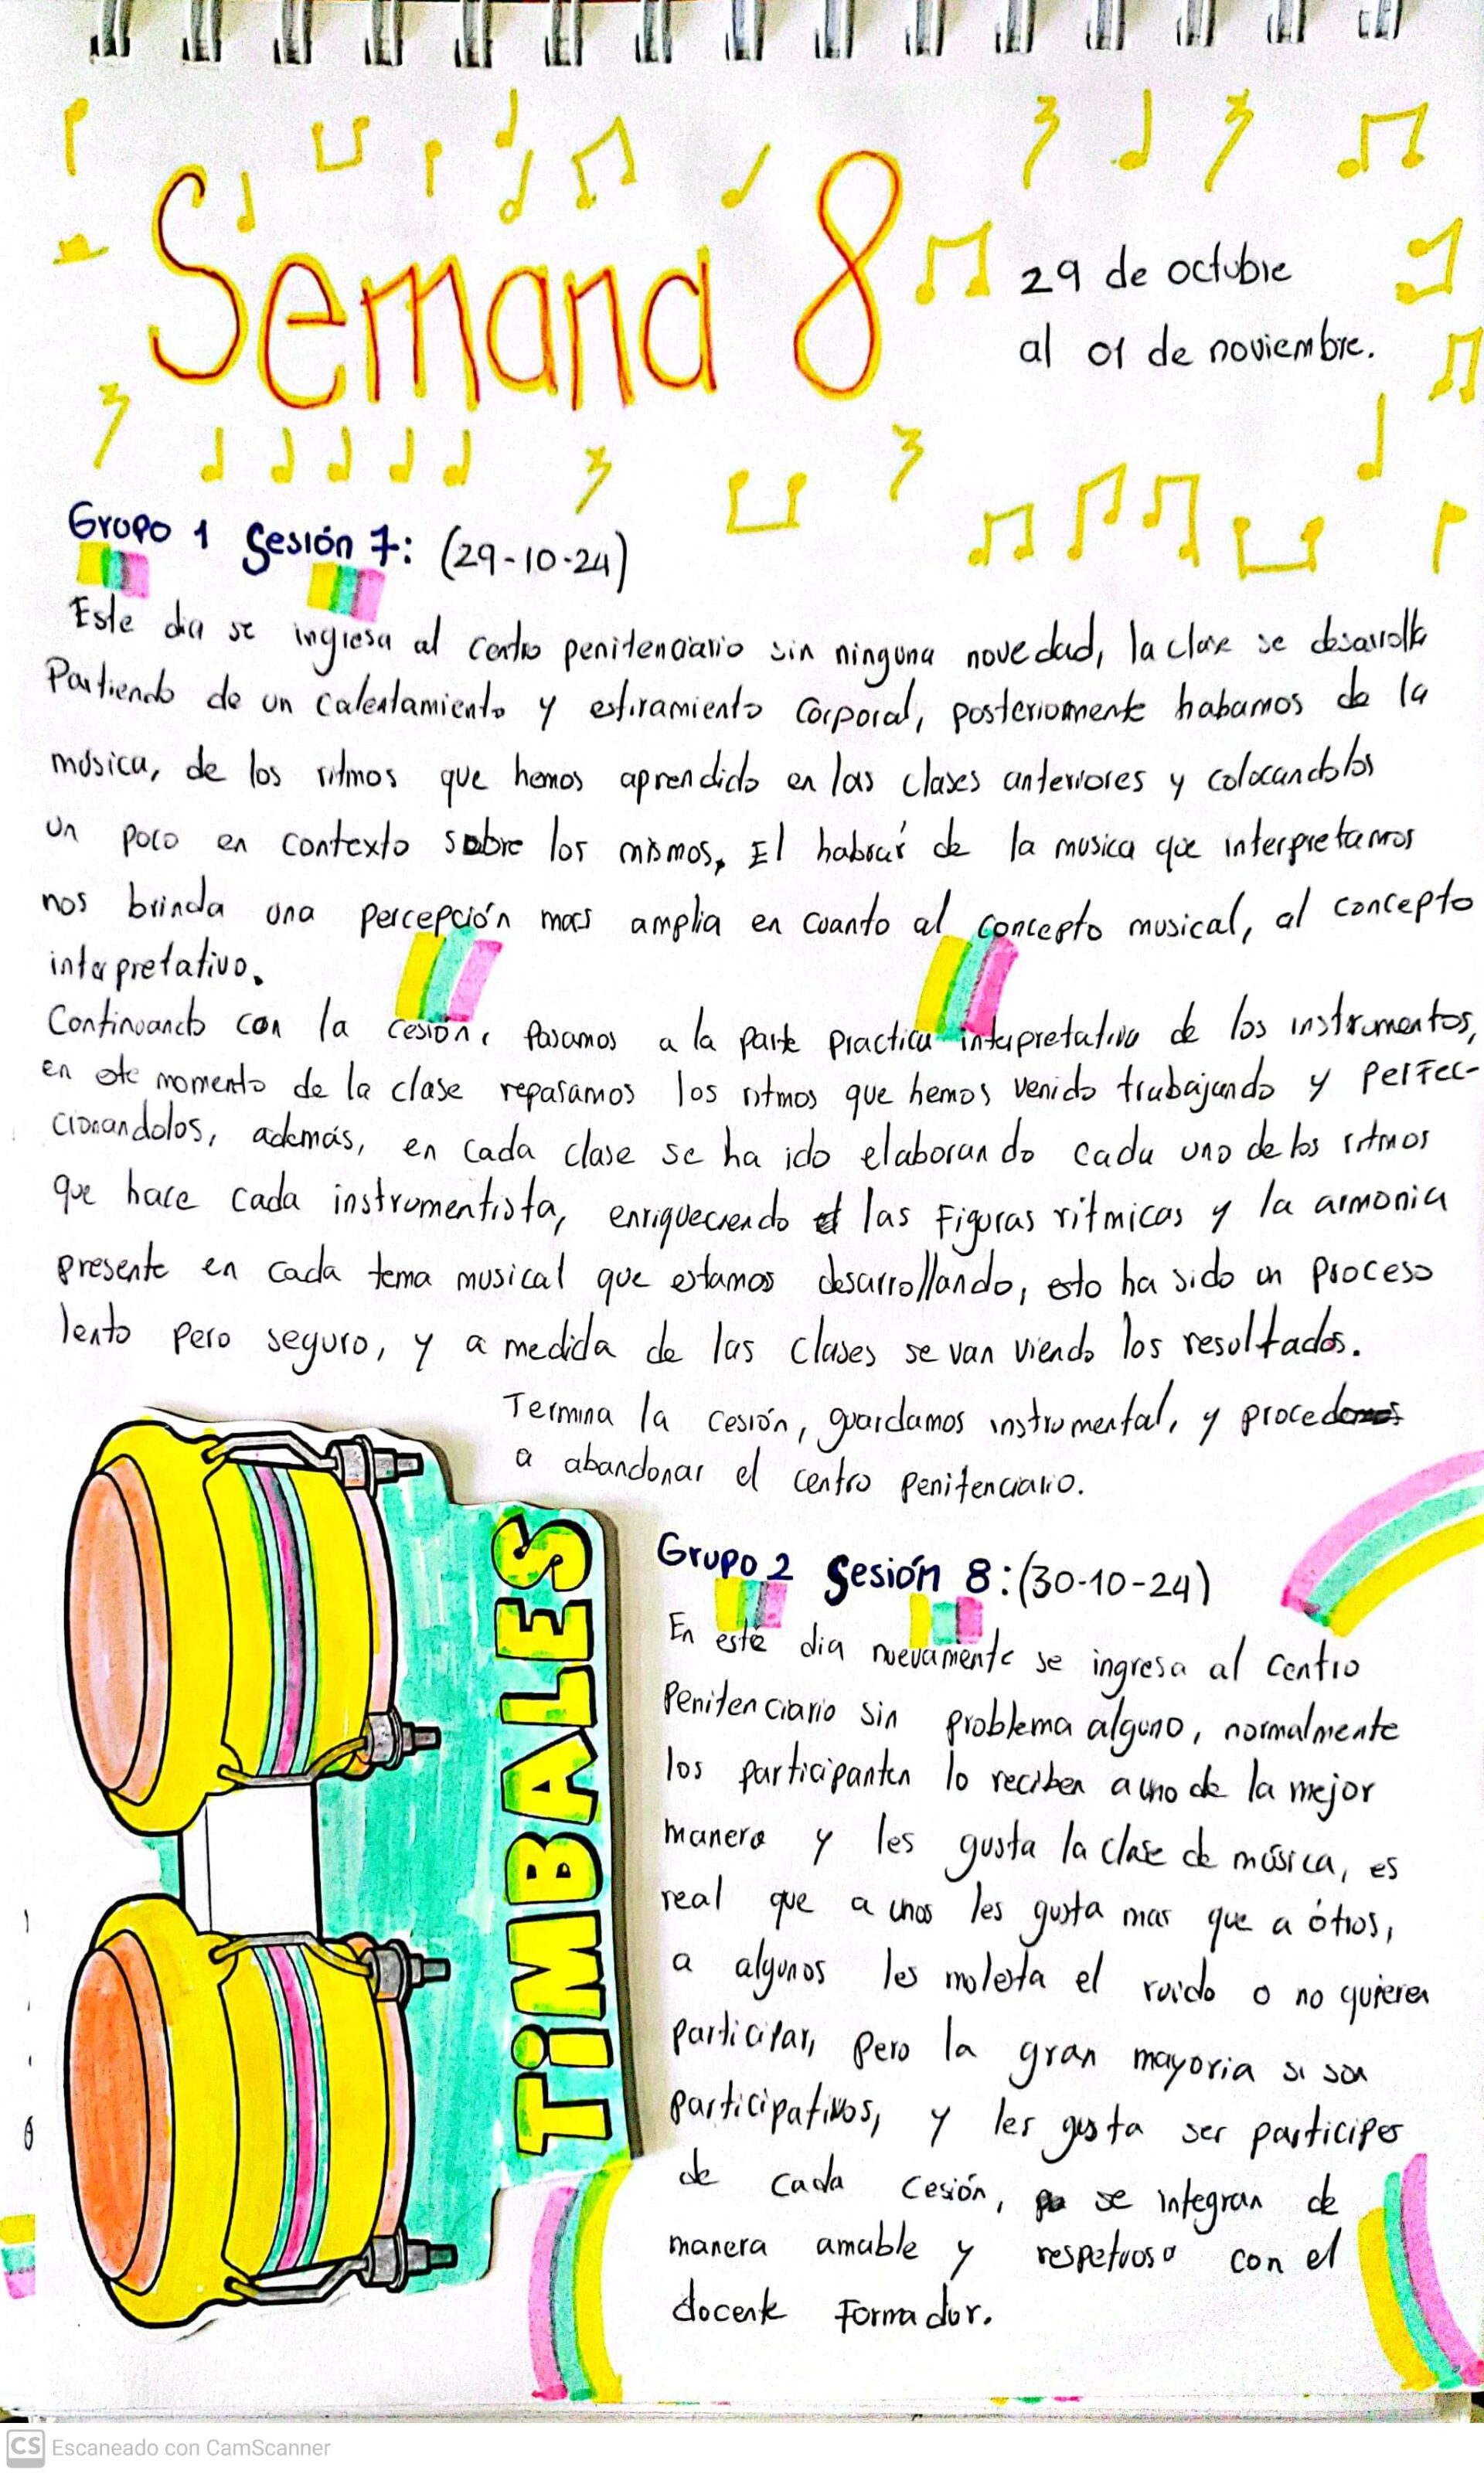 Semana 8
29 de octubre
al 01 de noviembre.
Grupo 1 Sesión 7: (29-10-24)
Este dia se ingresa al centro penitenciario sin ninguna novedad, la clase se desarrolla
Partiendo de un calentamiento y estiramiento corporal, posteriormente habamos de la
música, de los ritmos que hemos aprendido en las clases anteriores y colocandolos
un poco en contexto sobre los mismos, El habrar de la musica que interpretamos
nos brinda una percepción mas amplia en cuanto al concepto musical, al concepto
interpretativo.
Continuando con la cesión, pasamos a la parte practica interpretativa de los instrumentos,
en este momento de la clase repasamos los ritmos que hemos venido trabajando y perfec-
cionandolos, además, en cada clase se ha ido elaborando cada uno de los ritmos
que hace cada instrumentista, enriqueciendo las figuras ritmicas y la armonia
presente en cada tema musical que estamos desarrollando, esto ha sido un proceso
lento pero seguro, y a medida de las clases se van viendo los resultados.
Termina la cesión, guardamos instrumental, y procedemos
a abandonar el centro penitenciario.
TiMBALES
Grupo 2 Sesión 8: (30-10-24)
En este dia nuevamente se ingresa al centro
Penitenciario sin problema alguno, normalmente
los participanten lo reciben a uno de la mejor
manera y les gusta la clase de música, es
real que a unos les gusta mas que a ótros,
a algunos les molesta el ruido o no quieren
participar, pero la gran mayoria si son
participativos, y les gusta ser participes
de cada cesión, se integran de
manera amable y respetuosa con el
docente Formador.
CS Escaneado con CamScanner